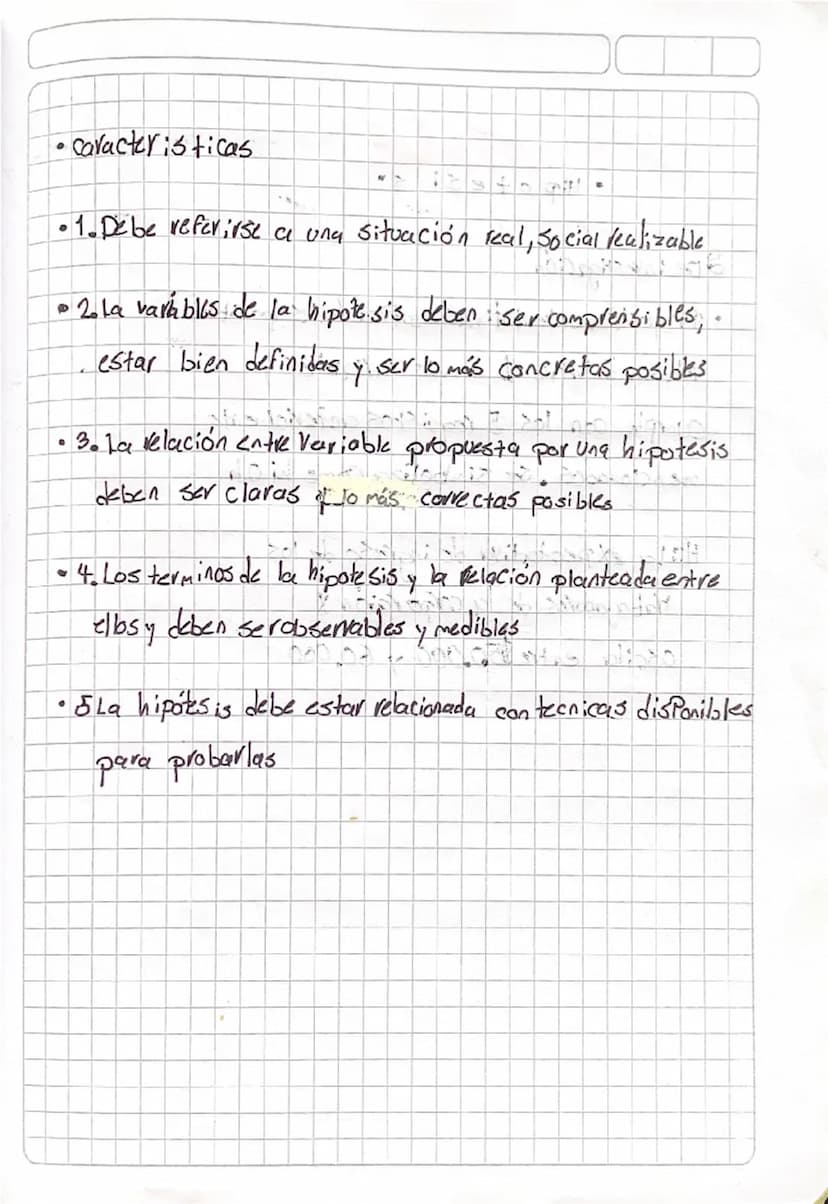 • caracteristicas
• 1. Debe referirse a una situación real, social realizable
• 2. La variables de la hipotesis deben ser comprensibles,
estar bien definidas y ser lo más concretas posibles
• 3. La relación entre variable propuesta por una hipotesis
deben ser claras y lo más correctas posibles
• 4. Los terminos de la hipotesis y la relación planteada entre
ellos y deben ser observables y medibles
• 5 La hipótesis debe estar relacionada con tecnicas disponibles
para probarlas